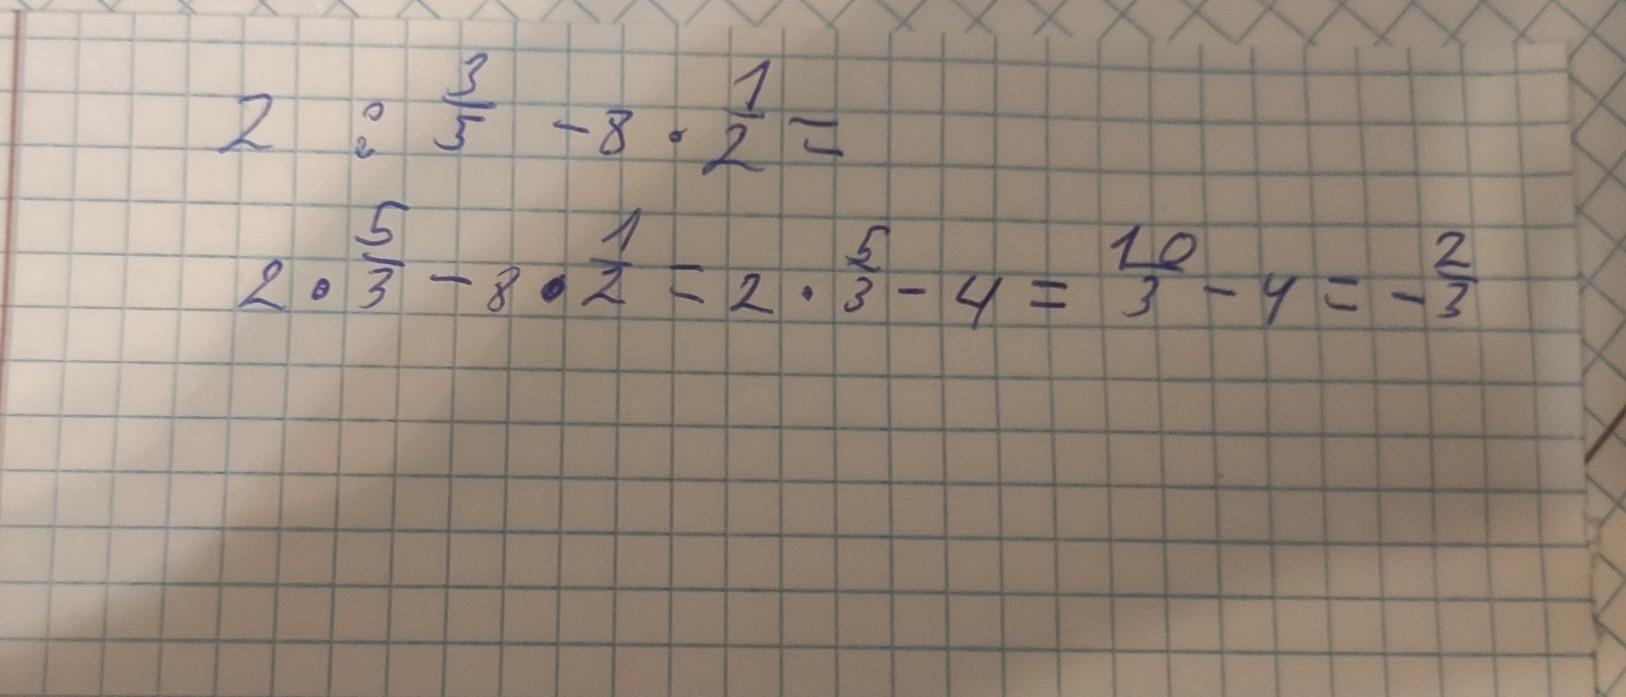 2 : 3/5 - 8 · 1/2 =
2 · 5/3 - 8 · 1/2 = 2 · 5/3 - 4 = 10/3 - 4 = - 2/3